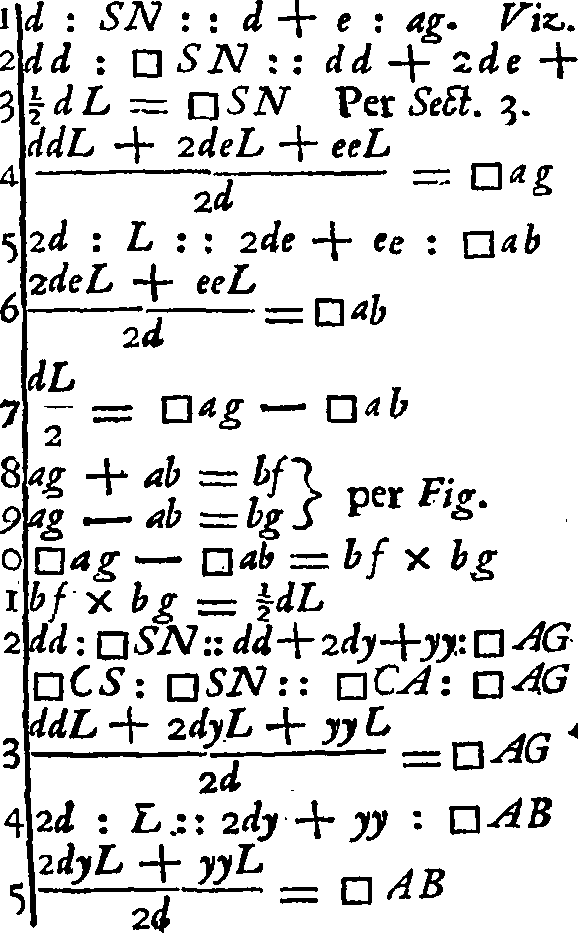 1 d : SN :: d + e : ag. Viz.
2 dd : □ SN :: dd + 2de +
3 ½dL = □SN Per Sect. 3.
4 ddL + 2deL + eeL / 2d = □ag
5 2d : L :: 2de + ee : □ab
6 2deL + eeL / 2d = □ab
7 dL / 2 = □ag — □ab
8 ag + ab = bf } per Fig.
9 ag — ab = bg
0 □ag — □ab = bf × bg
1 bf × bg = ½dL
2 dd : □SN :: dd + 2dy + yy : □AG
□CS : □SN :: □CA : □AG
3 ddL + 2dyL + yyL / 2d = □AG
4 2d : L :: 2dy + yy : □AB
5 2dyL + yyL / 2d = □AB